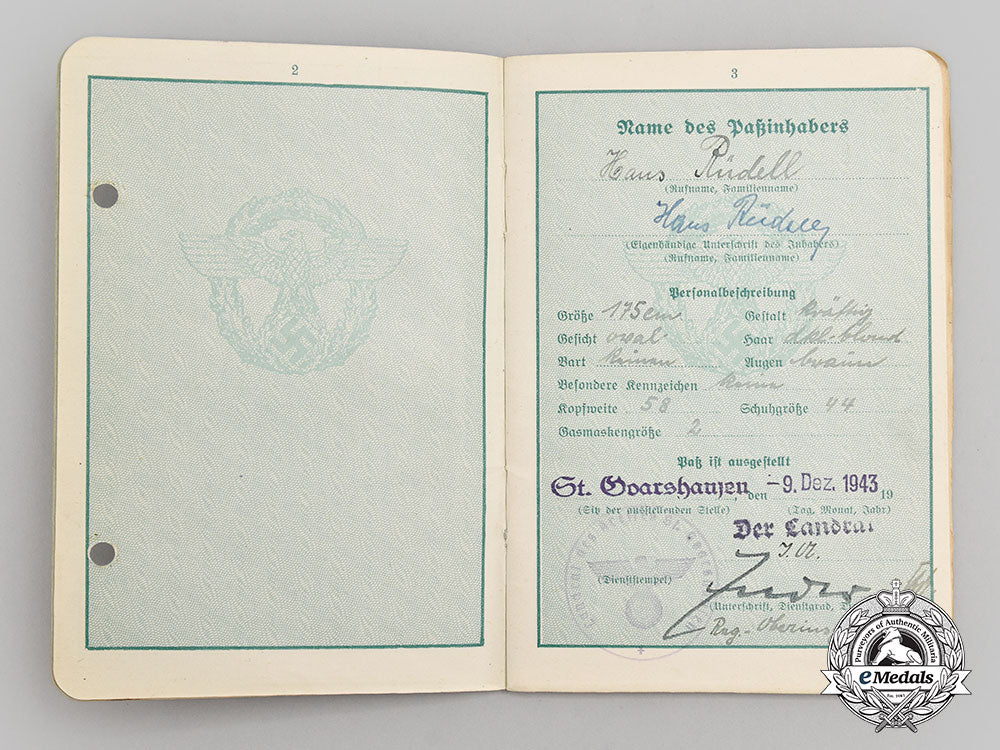 2
3
Name des Paßinhabers
Hans Rüdell
(Rufname, Familienname)
Hans Rüdell
(Eigenhändige Unterschrift des Inhabers)
(Rufname, Familienname)
Personalbeschreibung
Größe 175cm Gestalt kräftig
Gesicht oval Haar dkl. blond
Bart keinen Augen braun
Besondere Kennzeichen keine
Kopfweite 58 Schuhgröße 44
Gasmaskengröße 2
Paß ist ausgestellt
St. Goarshausen, den -9. Dez. 1943 19
(Sitz der ausstellenden Stelle) (Tag, Monat, Jahr)
Der Landrat
I.A.
(Dienststempel)
(Unterschrift, Dienstgrad, D
Reg.-Oberins
PURVEYORS OF AUTHENTIC MILITARIA
eMedals